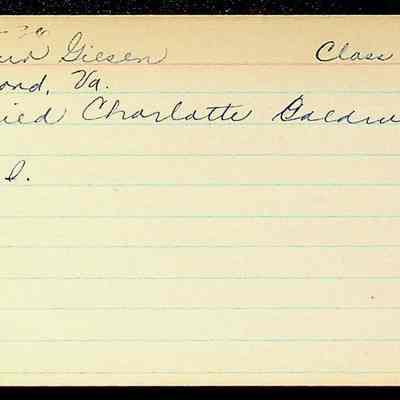 Giesen Class
ond, Va.
ied Charlotte
l.